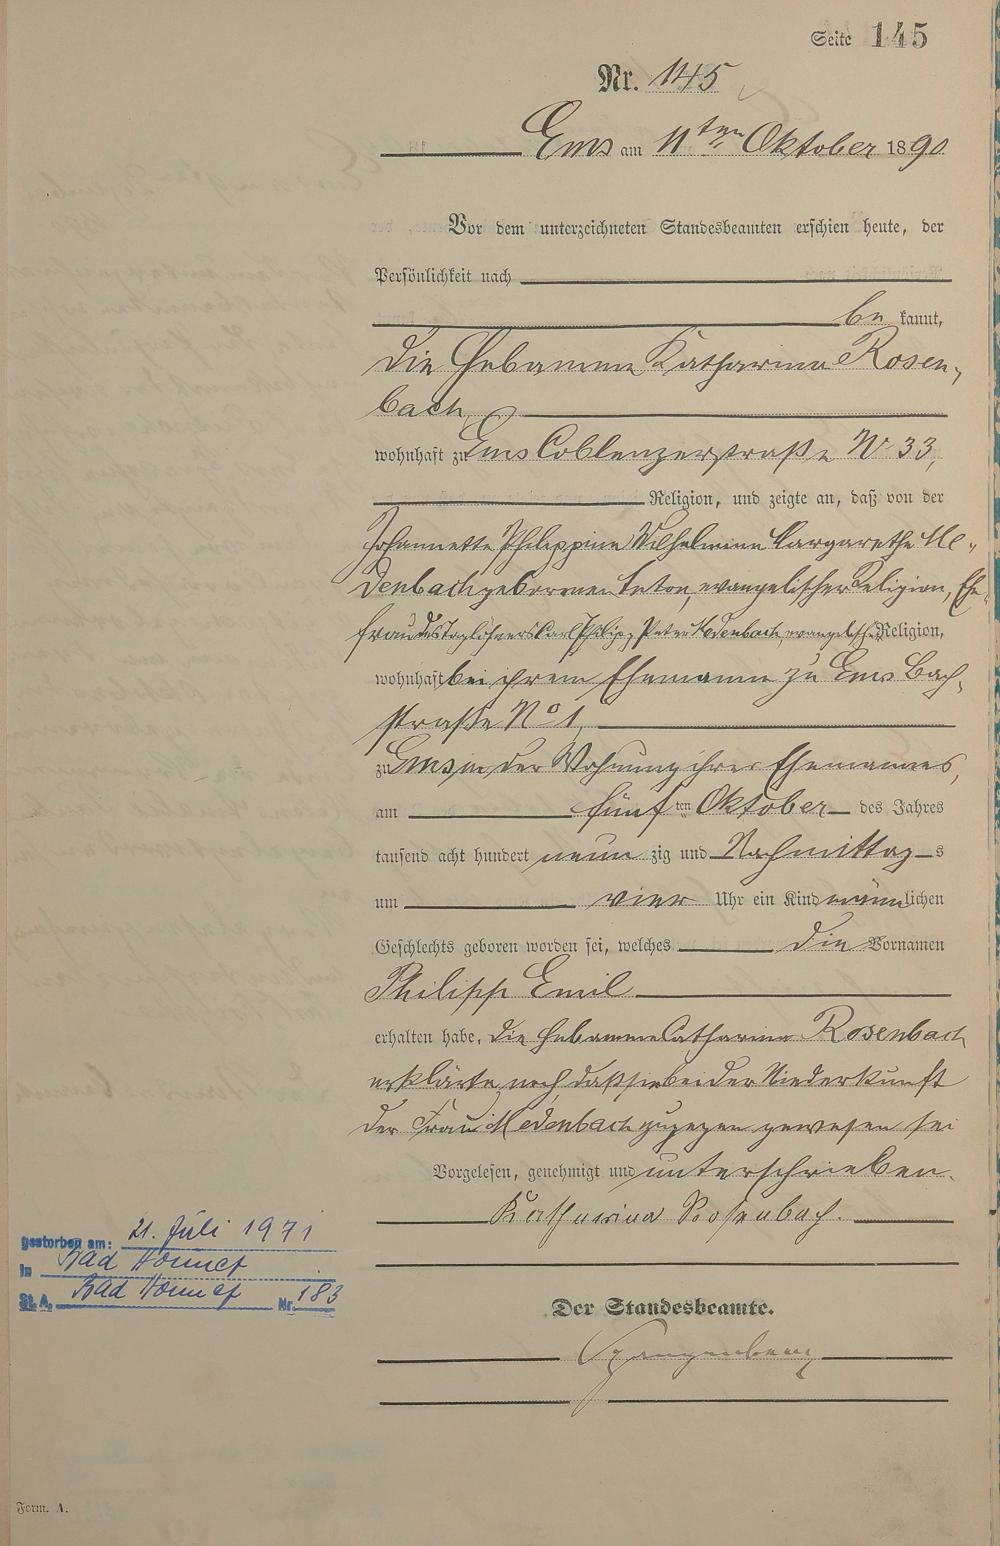 Seite 145
Nr. 145
Ems am 11ten Oktober 1890
Vor dem unterzeichneten Standesbeamten erschien heute, der
Persönlichkeit nach
be kannt,
die Hebamme Katharina Rosen-
bach,
wohnhaft zu Ems Coblenzerstraße No 33,
Religion, und zeigte an, daß von der
Johannette Philippine Wilhelmine Margarethe Me-
denbach geborenen Anton, evangelischer Religion, Ehe-
frau des Taglöhners Carl Philipp Peter Medenbach, evangelischer Religion,
wohnhaft bei ihrem Ehemanne zu Ems Bach-
straße No 1,
zu Ems in der Wohnung ihres Ehemannes,
am fünf ten Oktober des Jahres
tausend acht hundert neun zig und Nachmittag s
um vier Uhr ein Kind männlichen
Geschlechts geboren worden sei, welches die Vornamen
Philipp Emil
erhalten habe. Die Hebamme Catharina Rosenbach
erklärte noch, daß sie bei der Niederkunft
der Frau Medenbach zugegen gewesen sei
Vorgelesen, genehmigt und unterschrieben.
Katharina Rosenbach.
gestorben am: 21. Juli 1971
in Bad Honnef
St. A. Bad Honnef Nr. 183
Der Standesbeamte.
Form. A.